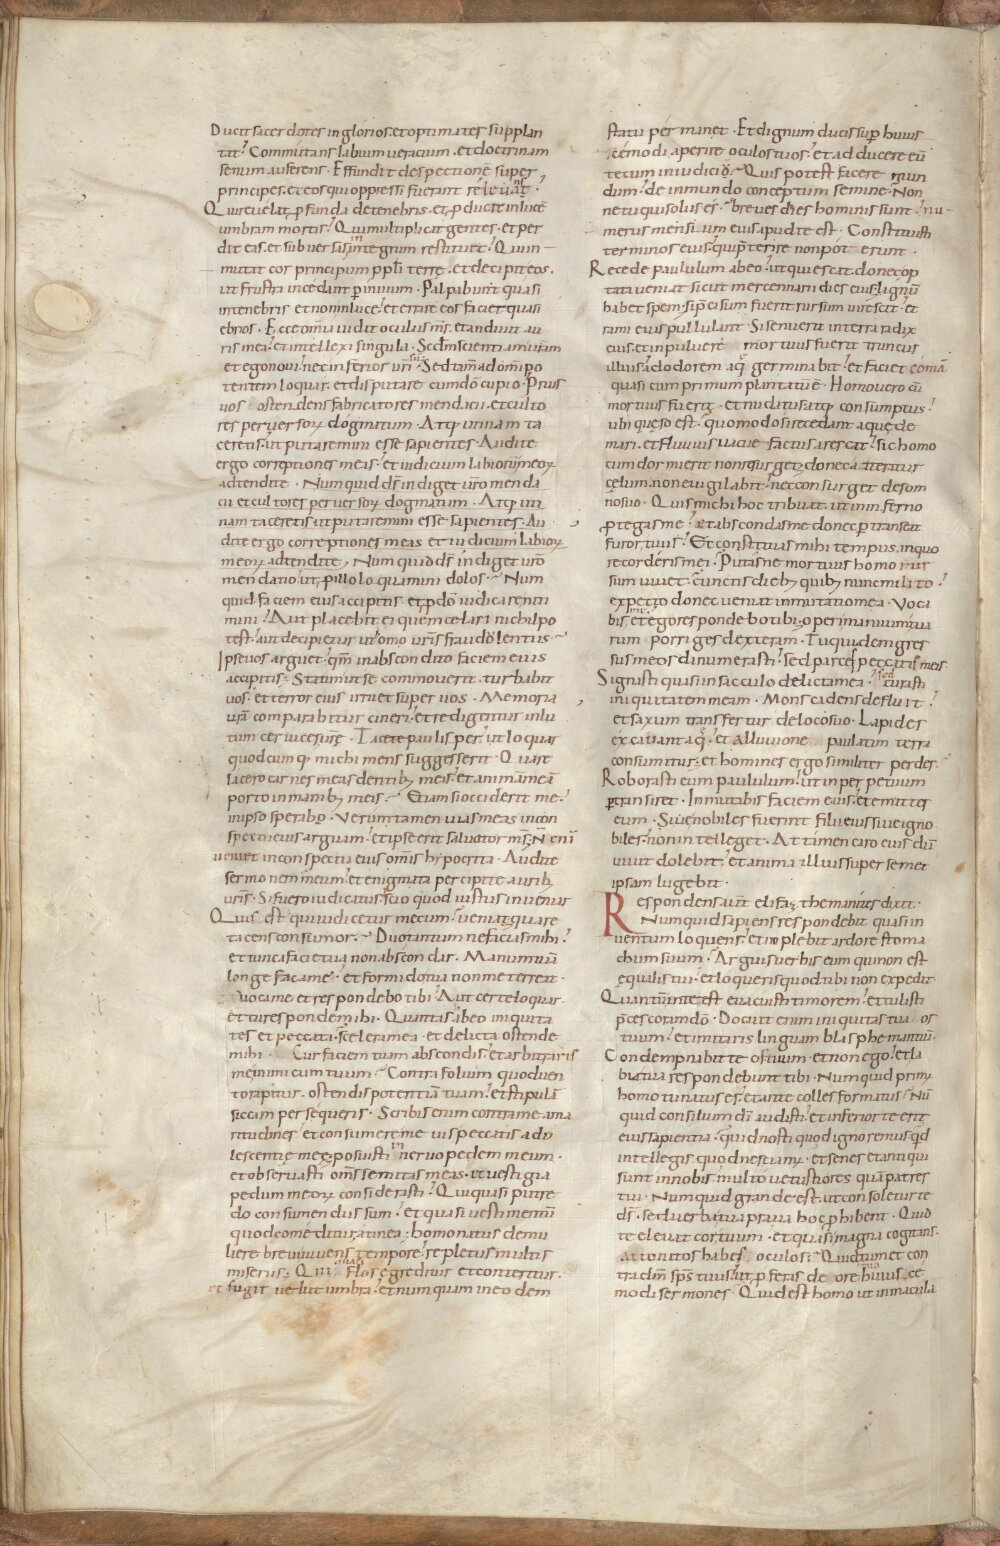 Ducit sacerdotes inglorios. et optimates supplan
tat. Commutans labium veracium. et doctrinam
senum auferens. Effundit despectionē super
principes. et eos qui oppressi fuerant relevans.
Qui revelat ꝓfunda de tenebris. et ꝓducit in lucē
umbram mortis. Qui multiplicat gentes. et per
dit eas. et subversas in integrum restituet. Qui in
mutat cor principum ppl̄i terrę. et decipit eos.
ut frustra incedant ꝑ invium. Palpabunt quasi
in tenebris et non in luce. et errare eos faciet quasi
ebrios. Ecce om̄ia vidit oculus m̄s. et audivit au
ris mea. et intellexi singula. Scd̄m scientiam vr̄am
et ego novi. nec inferior vr̄i sū. Sed tam̄ ad om̄ipo
tentem loquar. et disputare cum dō cupio. Prius
vos ostendens fabricatores mendacii. et culto
res perversoꝝ dogmatum. Atq; utinam ta
ceretis. ut putaremini esse sapientes. Audite
ergo correptiones meas. et iudicium labiorū meoꝝ
adtendite. Numquid ds̄ indiget vr̄o menda
cii et cultores perversoꝝ dogmatum. Atq; uti
nam taceretis ut putaremini esse sapientes. Au
dite ergo correptiones meas et iudicium labioꝝ
meoꝝ adtendite. Numquid ds̄ indiget vr̄o
mendatio ut ꝓ illo loquamini dolos. Num
quid faciem eius accipitis. et ꝓ dō iudicare niti
mini. Aut placebit ei quem celari nichil po
test. aut decipietur ut homo vr̄is fraudulentiis.
Ipse vos arguet. qm̄ in abscondito faciem eius
accipitis. Statim ut se commoverit. turbabit
vos. et terror eius irruet super vos. Memoria
vr̄a comparabitur cineri. et redigentur in lu
tum cervices vr̄ę. Tacete paulisper. ut loquar
quodcumq; michi mens suggesserit. Quare
lacero carnes meas dentib; meis. et animā meā
porto in manib; meis. Etiam si occiderit me.
in ipso sperabo. Verumtamen vias meas in con
spectu eius arguam. et ipse erit salvator ms̄. N̄ enī
veniet in conspectu eius om̄is hypocrita. Audite
sermonem meum. et enigmata percipite aurib;
vr̄is. Si fuero iudicatus. scio quod iustus inveniar
Quis est qui iudicetur mecum. veniat. quare
tacens consumor. Duo tantum ne facias mihi.
et tunc a facie tua non abscondar. Manum tuā
longe fac a me. et formido tua non me terreat.
Voca me et respondebo tibi. Aut certe loquar.
et tu responde mihi. Quantas habeo iniquita
tes et peccata. scelera mea. et delicta ostende
mihi. Cur faciem tuam abscondis. et arbitraris
me inimicum tuum. Contra folium quod ven
to rapitur. ostendis potentiā tuam. et stipulā
siccam persequeris. Scribis enim contra me ama
ritudines. et consumere me vis peccatis ado
lescentię męę. posuisti in nervo pedem meum.
et observasti om̄s semitas meas. et vestigia
pedum meoꝝ considerasti. Qui quasi putre
do consumendus sum. et quasi vestimentū
quod comeditur a tinea. Homo natus de mu
liere brevi vivens tempore. repletus multis
miseriis. Qui quasi flos egreditur et conteritur.
et fugit velut umbra. et numquam in eodem
statu permanet. Et dignum ducis sup̄ huius
cemodi aperire oculos tuos. et adducere eū
tecum in iudiciū. Quis potest facere mun
dum. de inmundo conceptum semine. Non
ne tu qui solus es. Breves dies hominis sunt. nu
merus mensium eius apud te est. Constituisti
terminos eius. qui p̄terire non poterunt.
Recede paululum ab eo. ut quiescat. donec op
tata veniat sicut mercennarii dies eius. Lignū
habet spem. si p̄cisum fuerit rursum virescit. et
rami eius pullulant. Si senuerit in terra radix
eius. et in pulvere mortuus fuerit truncus
illius. ad odorem aquę germinabit. et faciet comā
quasi cum primum plantatū ē. Homo vero cū
mortuus fuerit et nudatus atq; consumptus.
ubi quęso est. quomodo si recedant aquę de
mari. et fluvius vacuefactus arescat. sic homo
cum dormierit non resurget. donec atteratur
cęlum. non evigilabit. nec consurget de som
no suo. Quis michi hoc tribuat. ut in inferno
ꝓtegas me. et abscondas me donec ꝑtranseat
furor tuus. Et constituas mihi tempus. in quo
recorderis mei. Putasne mortuus homo rur
sum vivet. cunctis dieb; quib; nunc milito.
expecto donec veniat inmutatio mea. Voca
bis me et ego respondebo tibi. operi manuum tua
rum porriges dexteram. Tu quidem gres
sus meos dinumerasti. sed parces peccatis meis.
Signasti quasi in sacculo delicta mea. sed curasti
iniquitatem meam. Mons cadens defluit.
et saxum transfertur de loco suo. Lapides
excavant aquę. et alluvione paulatim terra
consumitur. et homines ergo similiter perdes.
Roborasti eum paululum. ut in perpetuum
ꝑtransiret. Inmutabis faciem eius. et emittes
eum. Sive nobiles fuerint filii eius sive igno
biles. non intelleget. Attamen caro eius dū
vivit dolebit. et anima illius super semet
ipsam lugebit.
Respondens aut̄ elifaz themanites dixit.
Numquid sapiens respondebit quasi in
ventum loquens. et implebit ardore stoma
chum suum. Arguis verbis eum qui non est
ęqualis tui. et loqueris quod tibi non expedit.
Quantū in te est evacuisti timorem. et tulisti
p̄ces coram dō. Docuit enim iniquitas tua os
tuum. et imitaris linguam blasphemantiū.
Condempnabit te os tuum. et non ego. et la
bia tua respondebunt tibi. Numquid primus
homo tu natus es. et ante colles formatus. Nū
quid consilium dī audisti. et inferior te erit
eius sapientia. quid nosti quod ignoremus. qd̄
intellegis quod nesciamus. et senes et antiqui
sunt in nobis. multo vetustiores quā patres
tui. Numquid grande est. ut consoletur te
ds̄. sed verba tua prava hoc ꝓhibent. Quid
te elevat cor tuum. et quasi magna cogitans.
attonitos habes oculos. Quid tumet con
tra dm̄ sp̄s tuus. ut ꝓferas de ore tuo huiusce
modi sermones. Quid est homo ut inmacula